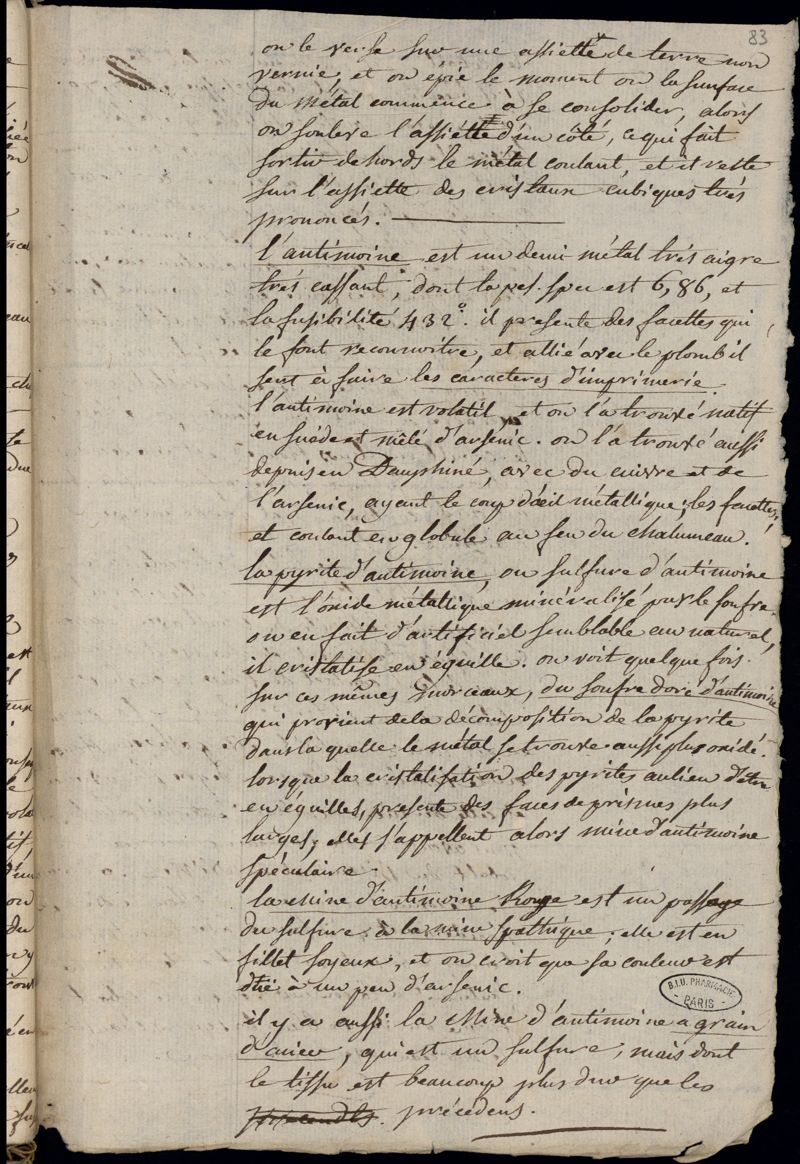 83
on le verse sur une assiette de terre non
vernie, et on épie le moment ou la surface
du métal commence à se consolider, alors
on souleve l'assiette d'un côté, ce qui fait
sortir dehors le métal coulant, et il reste
sur l'assiette des cristaux cubiques trés
prononcés.
l'antimoine est un demi métal trés aigre
trés cassant, dont la pes. spec est 6,86, et
la fusibilité 432°. il presente des facettes qui
le font reconnoitre, et allié avec le plomb il
sert à faire les caracteres d'imprimerie.
l'antimoine est volatil, et on l'a trouvé natif
en suéde et mêlé d'arsénic. on l'a trouvé aussi
depuis en Dauphiné, avec du cuivre et de
l'arsenic, ayant le coup d'œil métallique, les facettes,
et coulant en globule au feu du chalumeau.
la pyrite d'antimoine, ou sulfure d'antimoine
est l'oxide métallique minéralisé par le soufre.
on en fait d'artificiel semblable au naturel,
il cristalise en éguille. on voit quelque fois
sur ces mêmes morceaux, du soufre doré d'antimoine
qui provient de la décomposition de la pyrite
dans la quelle le métal se trouve aussi plus oxidé.
lorsque la cristalisation des pyrites au lieu d'être
en éguilles, presente des faces de prismes plus
larges, elles s'appellent alors mine d'antimoine
spéculaire.
la Mine d'antimoine Rouge est un passage
du sulfure à la mine spathique, elle est en
fillet soyeux, et on croit que sa couleur est
dûe à un peu d'arsenic.
B.I.U. PHARMACIE
PARIS
il y a aussi la Mine d'antimoine a grain
d'acier, qui est un sulfure, mais dont
le tissu est beaucoup plus dur que les
précédens.